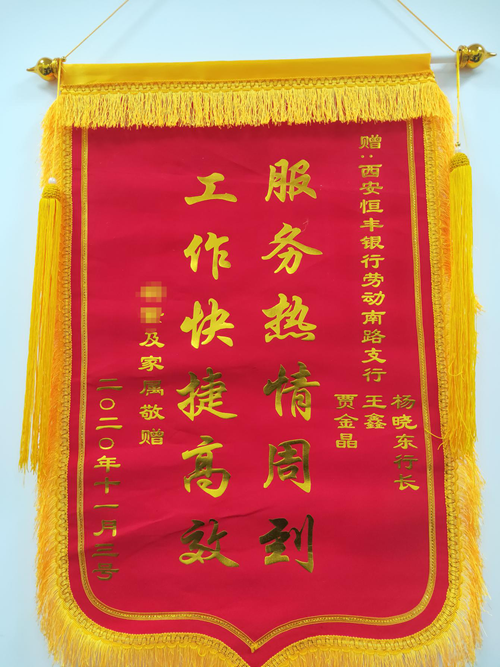 赠：西安恒丰银行劳动南路支行
杨晓东行长
王鑫
贾金晶
服务热情周到
工作快捷高效
及家属敬赠
二〇二〇年十一月三号